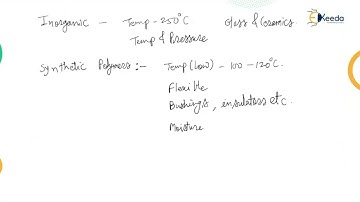 Inorganic - Temp - 250°C Glass & Ceramics.
Temp & Pressure
Ekeeda
Synthetic Polymers :- Temp (Low) - 100 - 120°C.
Flexible
Bushings, insulators etc.
Moisture